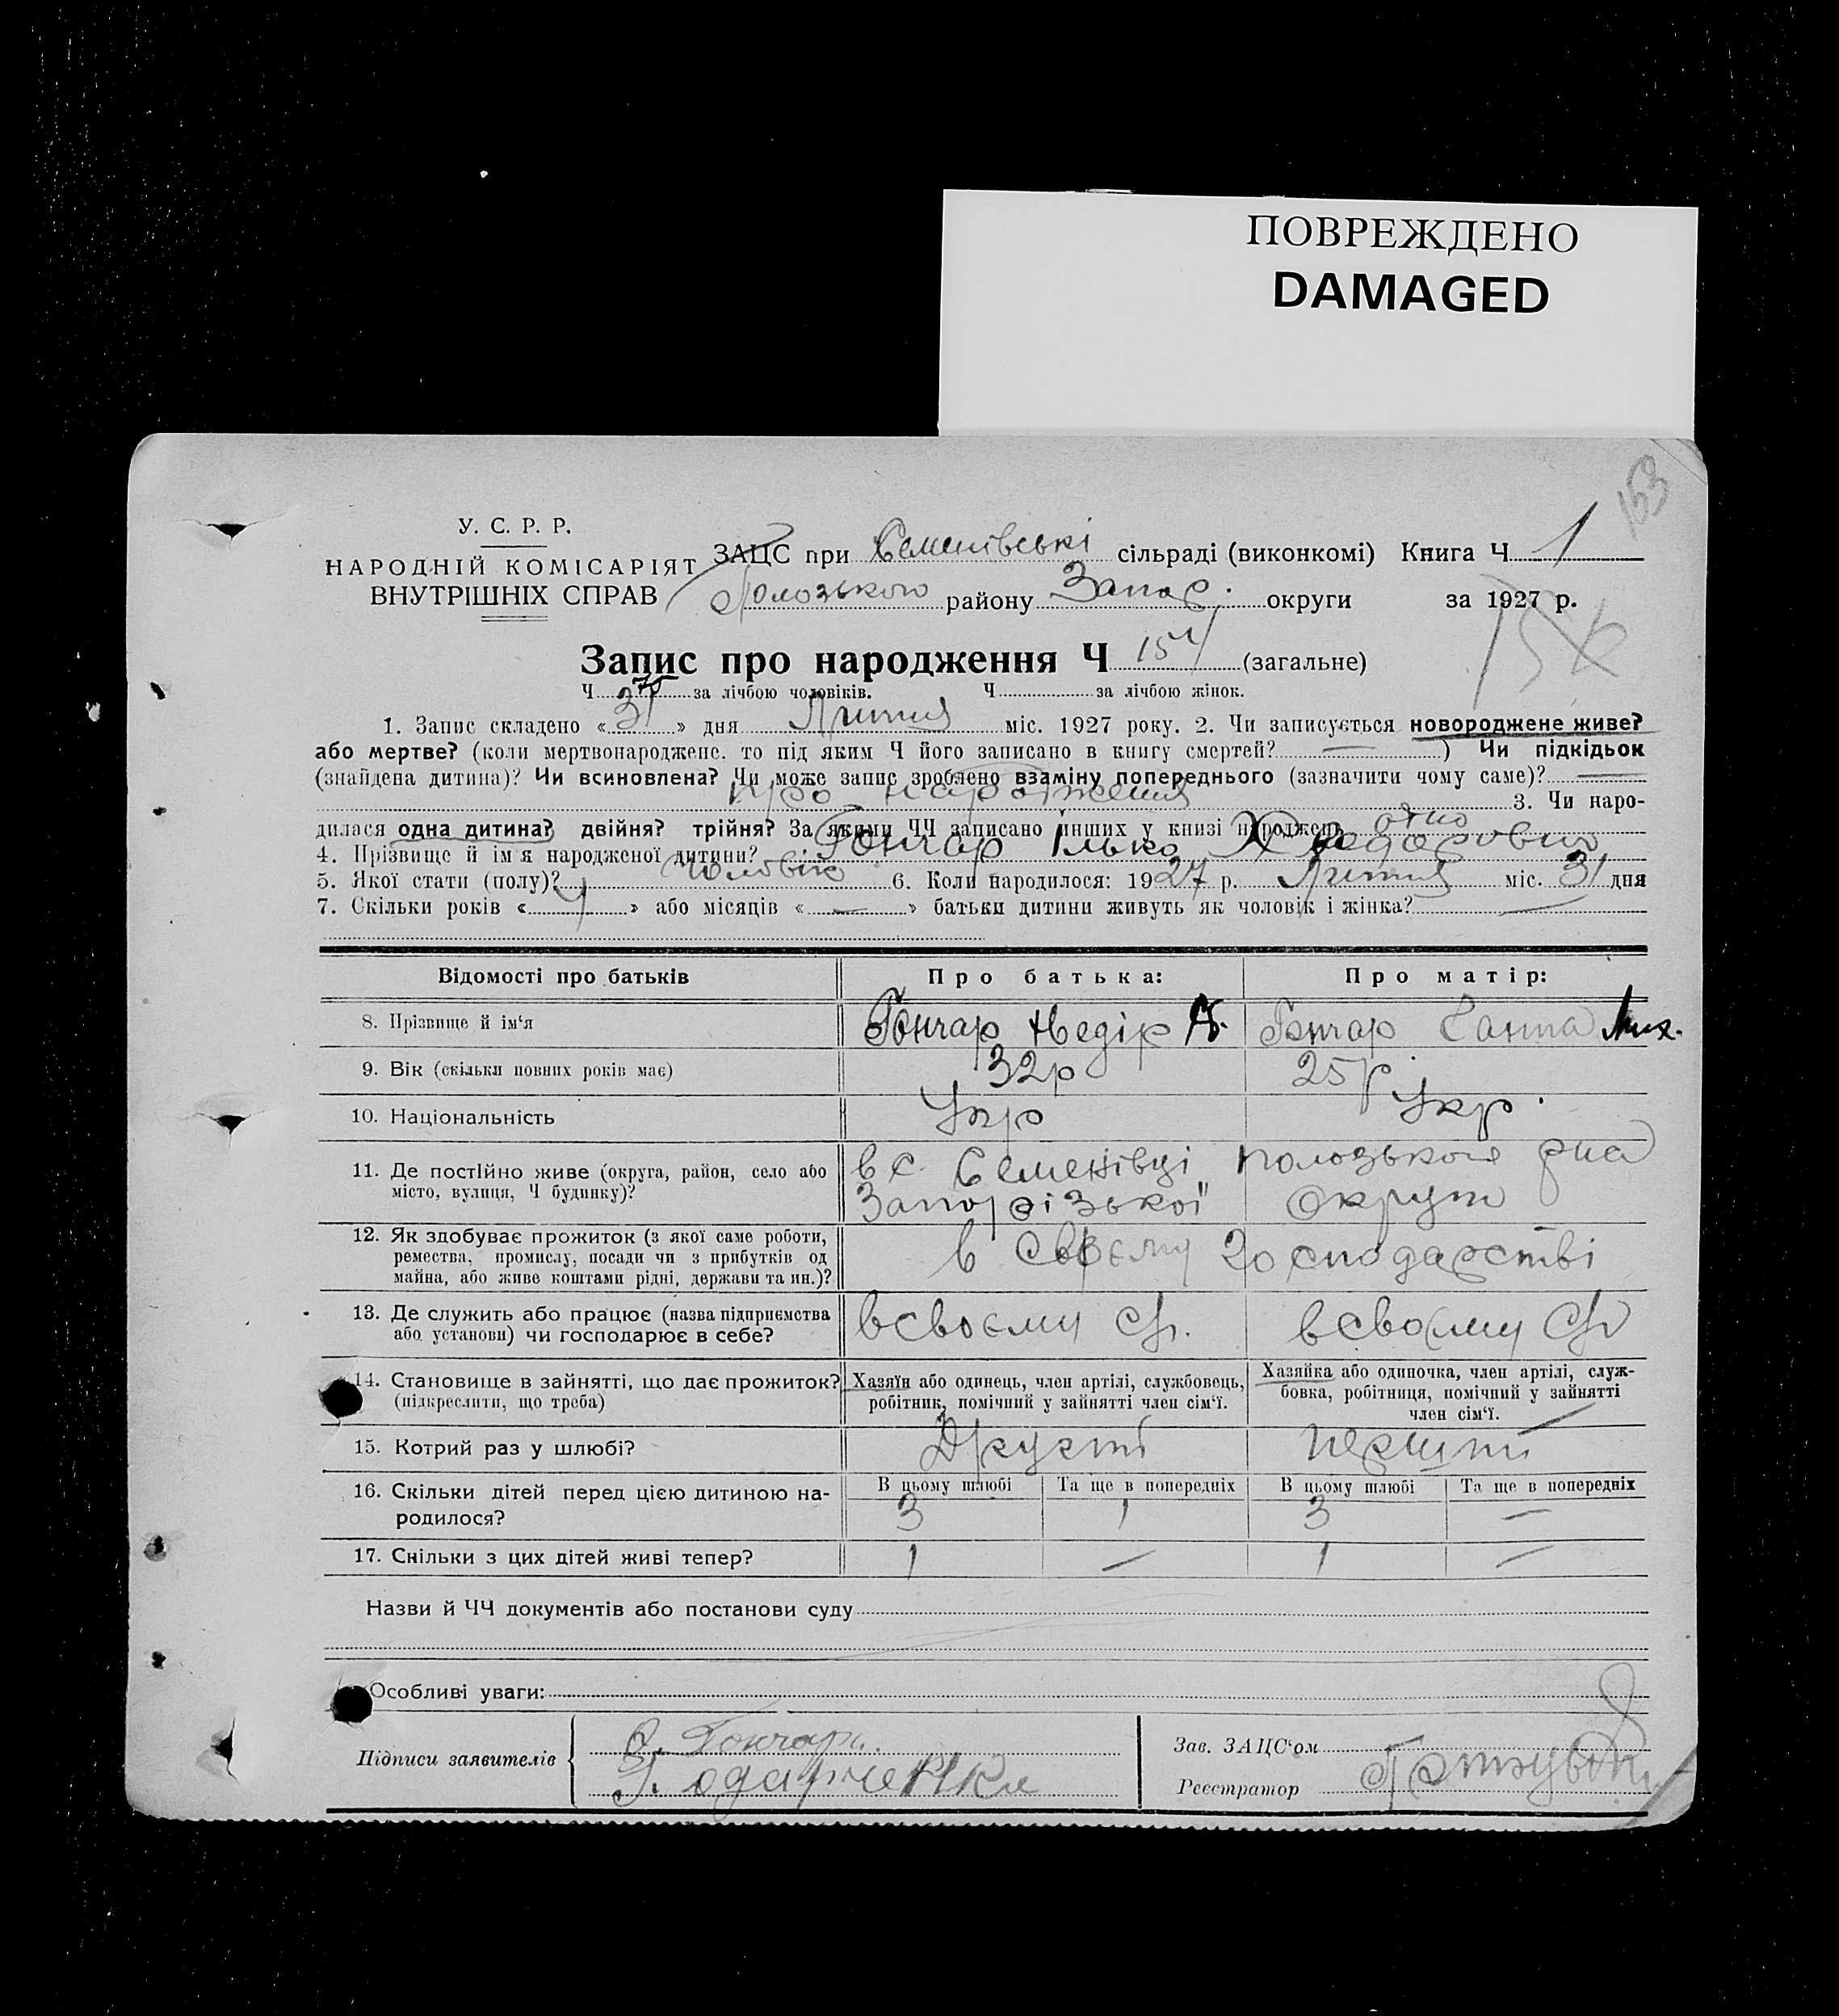 ПОВРЕЖДЕНО
DAMAGED
153
У. С. Р. Р.
НАРОДНІЙ КОМІСАРІЯТ
ВНУТРІШНІХ СПРАВ
ЗАЦС при Семенівські сільраді (виконкомі) Книга Ч. 1
Полозького району Запор. округи за 1927 р.
Запис про народження Ч 154 (загальне)
Ч. 75 за лічбою чоловіків. Ч. за лічбою жінок.
1. Запис складено « 31 » дня Липня міс. 1927 року. 2. Чи записується новороджене живе?
або мертве? (коли мертвонароджене, то під яким Ч його записано в книгу смертей? — ) Чи підкідьок
(знайдена дитина)? Чи всиновлена? Чи може запис зроблено взаміну попереднього (зазначити чому саме)? —
про народження 3. Чи наро-
дилася одна дитина? двійня? трійня? За якими ЧЧ записано инших у книзі народжень одно
4. Прізвище й ім'я народженої дитини? Гончар Ілько
5. Якої стати (полу)? Чоловік 6. Коли народилося: 1927 р. Липня міс. 31 дня
7. Скільки років « 4 » або місяців « — » батьки дитини живуть як чоловік і жінка? —
Відомості про батьків Про батька: Про матір:
8. Прізвище й ім'я Гончар Хведір Гончар Ганна Мих.
9. Вік (скільки повних років має) 32р 25р.
10. Національність Укр Укр.
11. Де постійно живе (округа, район, село або в с. Семенівці Полозького рна
місто, вулиця, Ч будинку)? Запорізької округи
12. Як здобуває прожиток (з якої саме роботи, в своєму господарстві
ремества, промислу, посади чи з прибутків од
майна, або живе коштами рідні, держави та ин.)?
13. Де служить або працює (назва підприємства в своєму в своєму
або установи) чи господарює в себе?
14. Становище в зайнятті, що дає прожиток? Хазяїн або одинець, член артілі, службовець, Хазяйка або одиночка, член артілі, служ-
(підкреслити, що треба) робітник, помічний у зайнятті член сім'ї. бовка, робітниця, помічний у зайнятті
член сім'ї.
15. Котрий раз у шлюбі? Другий перший
16. Скільки дітей перед цією дитиною на- В цьому шлюбі Та ще в попередніх В цьому шлюбі Та ще в попередніх
родилося? 3 1 3 —
17. Скільки з цих дітей живі тепер? 1 — 1 —
Назви й ЧЧ документів або постанови суду
Особливі уваги:
Підписи заявителів Гончарь.
Зав. ЗАЦС'ом
Реєстратор